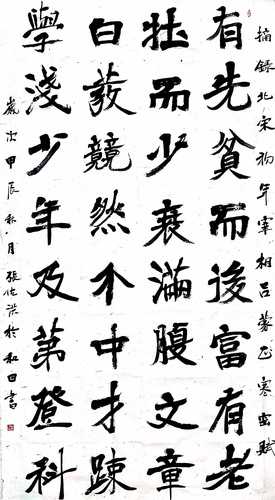 摘錄北宋初年宰相吕蒙正寒窑賦
有先貧而後富有老
壯而少衰滿腹文章
白發競然不中才踈
學淺少年及第登科
歲次甲辰秋八月張洪於和田書